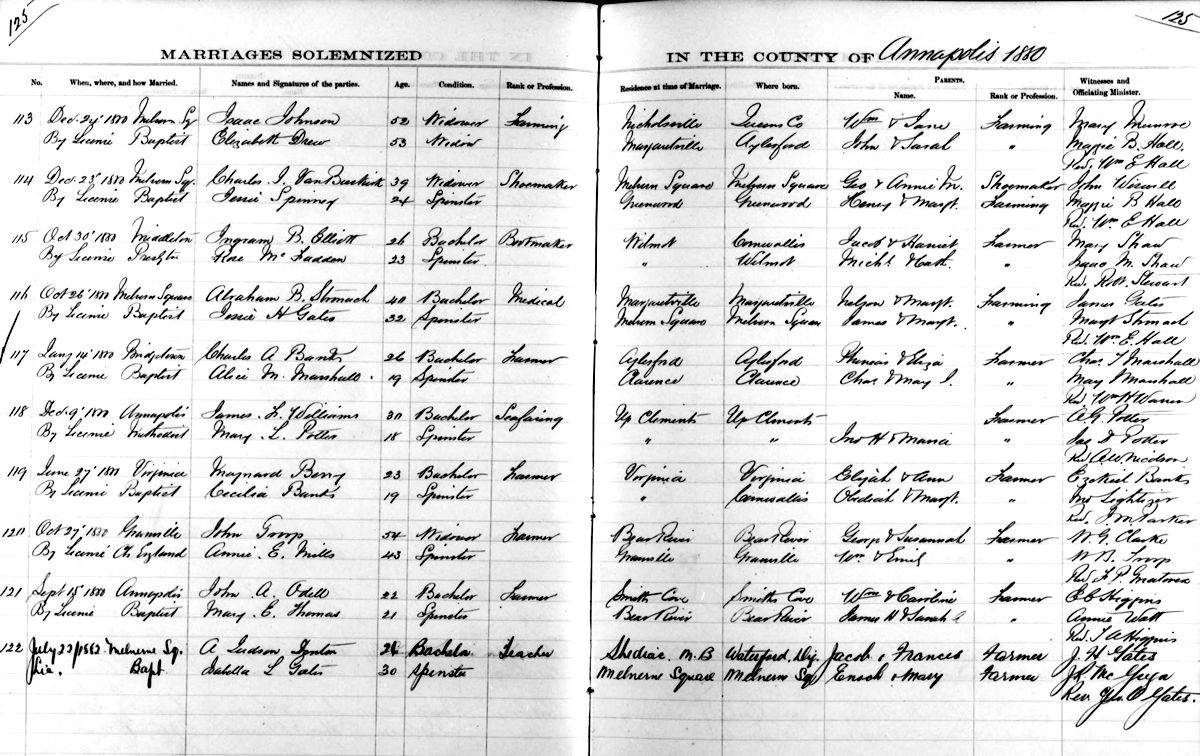 125
125
MARRIAGES SOLEMNIZED IN THE COUNTY OF Annapolis 1880
PARENTS.
No. When, where, and how Married. Names and Signatures of the parties. Age. Condition. Rank or Profession. Residence at time of Marriage. Where born. Name. Rank or Profession. Witnesses and Officiating Minister.
113 Dec. 24' 1880 Melvern Sq Isaac Johnson 52 Widower Farming Nicholsville Queens Co Wm & Jane Farming Mary Munroe
By License Baptist Elizabeth Drew 53 Widow Margaretville Aylesford John & Sarah " Maggie B. Hall
Rev. Wm E Hall
114 Dec. 23' 1880 Melvern Sqr. Charles I. VanBuskirk 39 Widower Shoemaker Melvern Square Melvern Square Geo & Annie M. Shoemaker John
By License Baptist Jessie Spinney 24 Spinster Greenwood Greenwood Henry & Margt. Farming Maggie B Hall
Rev. Wm. E Hall
115 Oct 30' 1880 Middleton Ingram B. Elliott 26 Bachelor Bootmaker Wilmot Cornwallis Jacob & Harriet Farmer Mary Shaw
By License Presbtn Rose McFadden 23 Spinster " Wilmot Michl & Cath. " Isaac M. Shaw
Rev. Robt. Stewart
116 Oct 26' 1880 Melvern Square Abraham B. Stronach 40 Bachelor Medical Margaretville Margaretville Nelson & Margt. Farming James Gates
By License Baptist Jessie H Gates 32 Spinster Melvern Square Melvern Square James & Margt. " Margt Stronach
Rev. Wm E. Hall
117 Jany 14' 1880 Bridgetown Charles A Banks 26 Bachelor Farmer Aylesford Aylesford Phineas & Eliza Farmer Chas. T Marshall
By License Baptist Alice M. Marshall 19 Spinster Clarence Clarence Chas. & Mary J. " May Marshall
Rev. Wm H Warren
118 Decr 9' 1880 Annapolis James L. Williams 30 Bachelor Seafaring Up Clements Up Clements Farmer A. G. Potter
By License Methodist Mary L. Potter 18 Spinster " " Jno H & Maria " Jas D Potter
Rev. A. W. Nicolson
119 June 27' 1880 Virginia Maynard Berry 23 Bachelor Farmer Virginia Virginia Elijah & Ann Farmer Ezekiel Banks
By License Baptist Cecilia Banks 19 Spinster " Cornwallis Obediah & Margt. " Jno Lightizer
Rev. J M Parker
120 Oct 27' 1880 Granville John Troop 54 Widower Farmer Bear River Bear River George & Susannah Farmer W. G. Clarke
By License Ch. England Annie E. Mills 43 Spinster Granville Granville Wm & Emily " W. B. Troop
Rev F. P. Greatorex
121 Sept 15' 1880 Annapolis John A. Odell 22 Bachelor Farmer Smiths Cove Smiths Cove Wm & Caroline Farmer E C Higgins
By License Baptist Mary. E. Thomas 21 Spinster Bear River Bear River James H & Sarah A " Annie Watt
Rev. T A Higgins
122 July 22/1882 Melnerne Sq. A Judson 26 Bachelor Teacher Shediac. N.B Waterford, Dig. Jacob & Frances Farmer J. H Gates
Lic. Bapt Isabella L Gates 30 Spinster Melnerne Square Melnerne Sq Enoch & Mary Farmer
Rev Geo. O Gates.